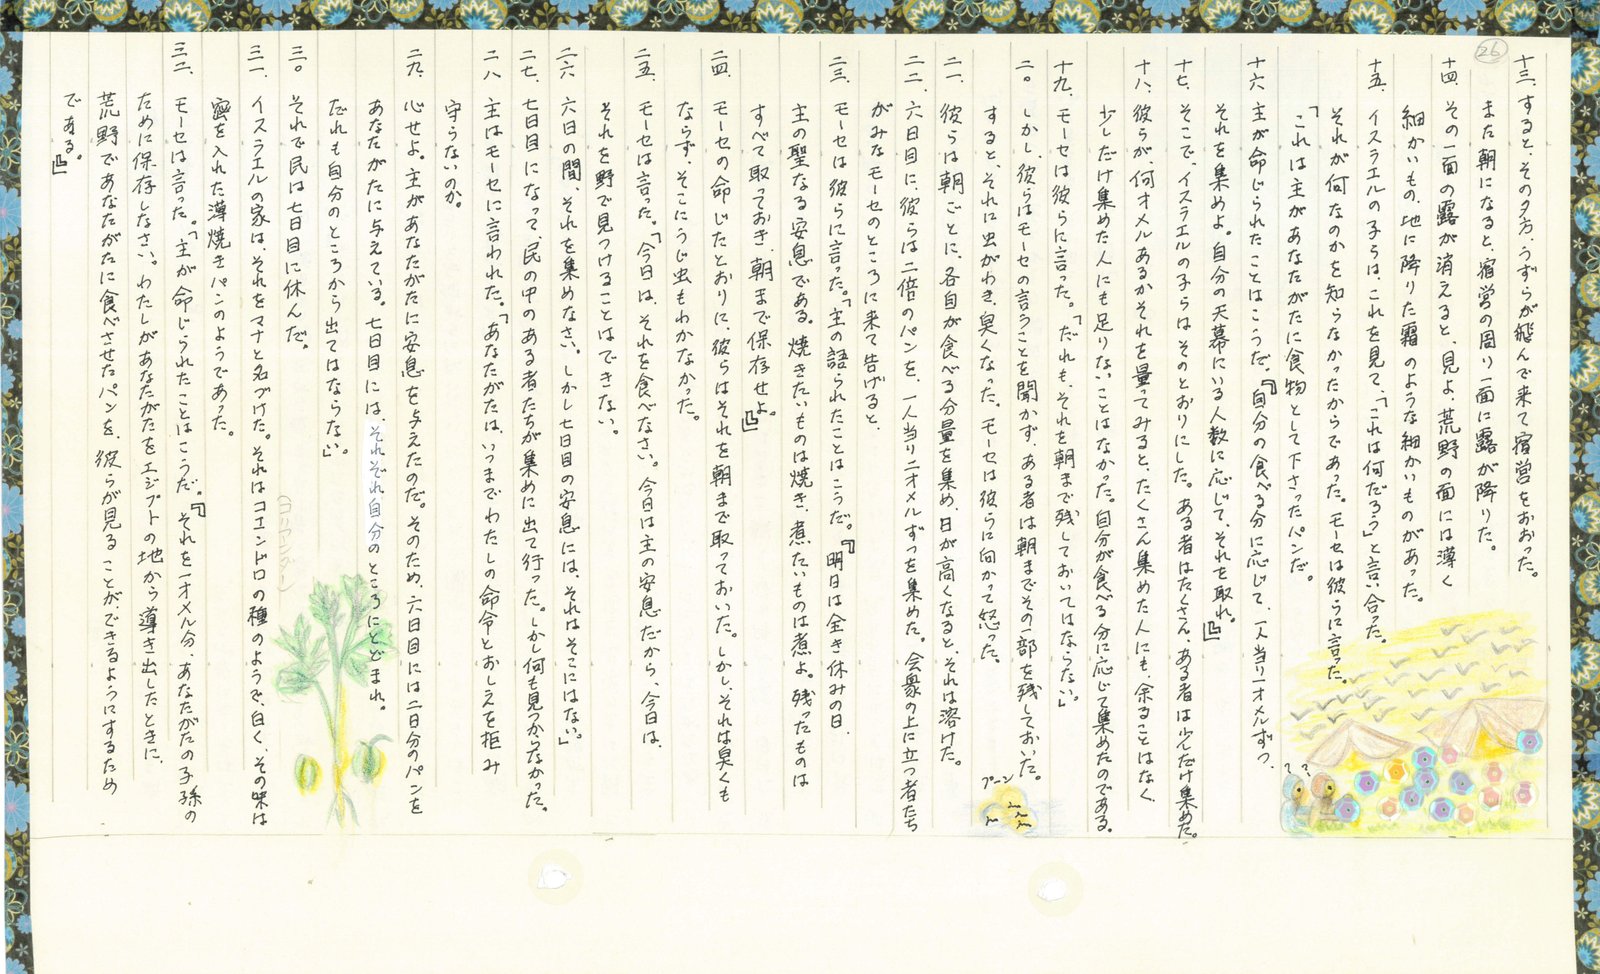 26
十三、すると、その夕方、うずらが飛んで来て宿営をおおった。
また朝になると、宿営の周り一面に露が降りた。
十四、その一面の露が消えると、見よ、荒野の面には薄く
細かいもの、地に降りた霜のような細かいものがあった。
十五、イスラエルの子らは、これを見て、「これは何だろう」と言い合った。
それが何なのかを知らなかったからであった。モーセは彼らに言った。
「これは主があなたがたに食物として下さったパンだ。
十六、主が命じられたことはこうだ。『自分の食べる分に応じて、一人当り一オメルずつ、
それを集めよ。自分の天幕にいる人数に応じて、それを取れ。』」
十七、そこで、イスラエルの子らはそのとおりにした。ある者はたくさん、ある者は少しだけ集めた。
十八、彼らが、何オメルあるかそれを量ってみると、たくさん集めた人にも、余ることはなく、
少しだけ集めた人にも足りないことはなかった。自分が食べる分に応じて集めたのである。
十九、モーセは彼らに言った。「だれも、それを朝まで残しておいてはならない。」
二〇、しかし、彼らはモーセの言うことを聞かず、ある者は朝までその一部を残しておいた。
すると、それに虫がわき、臭くなった。モーセは彼らに向かって怒った。
二一、彼らは朝ごとに、各自が食べる分量を集め、日が高くなると、それは溶けた。
二二、六日目に、彼らは二倍のパンを、一人当り二オメルずつを集めた。会衆の上に立つ者たち
がみなモーセのところに来て告げると、
二三、モーセは彼らに言った。「主の語られたことはこうだ。『明日は全き休みの日、
主の聖なる安息である。焼きたいものは焼き、煮たいものは煮よ。残ったものは
すべて取っておき、朝まで保存せよ。』」
二四、モーセの命じたとおりに、彼らはそれを朝まで取っておいた。しかし、それは臭くも
ならず、そこにうじ虫もわかなかった。
二五、モーセは言った。「今日は、それを食べなさい。今日は主の安息だから、今日は、
それを野で見つけることはできない。
二六、六日の間、それを集めなさい。しかし七日目の安息には、それはそこにはない。」
二七、七日目になって、民の中のある者たちが集めに出て行った。しかし何も見つからなかった。
二八、主はモーセに言われた。「あなたがたは、いつまでわたしの命令とおしえを拒み
守らないのか。
二九、心せよ。主があなたがたに安息を与えたのだ。そのため、六日目には二日分のパンを
あなたがたに与えている。七日目には、それぞれ自分のところにとどまれ。
だれも自分のところから出てはならない。」
三〇、それで民は七日目に休んだ。
(コリアンダー)
三一、イスラエルの家は、それをマナと名づけた。それはコエンドロの種のようで、白く、その味は
蜜を入れた薄焼きパンのようであった。
三二、モーセは言った。「主が命じられたことはこうだ。『それを一オメル分、あなたがたの子孫の
ために保存しなさい。わたしがあなたがたをエジプトの地から導き出したときに、
荒野であなたがたに食べさせたパンを、彼らが見ることができるようにするため
である。』」
??
プーン